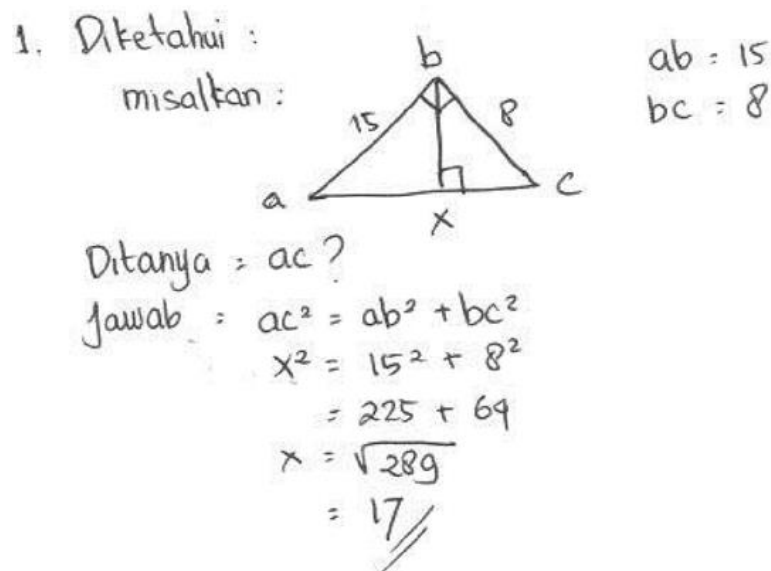 1. Diketahui :
misalkan :
b
15
8
a
c
x
ab : 15
bc : 8
Ditanya : ac ?
Jawab : ac² = ab² + bc²
x² = 15² + 8²
= 225 + 64
x = √289
= 17